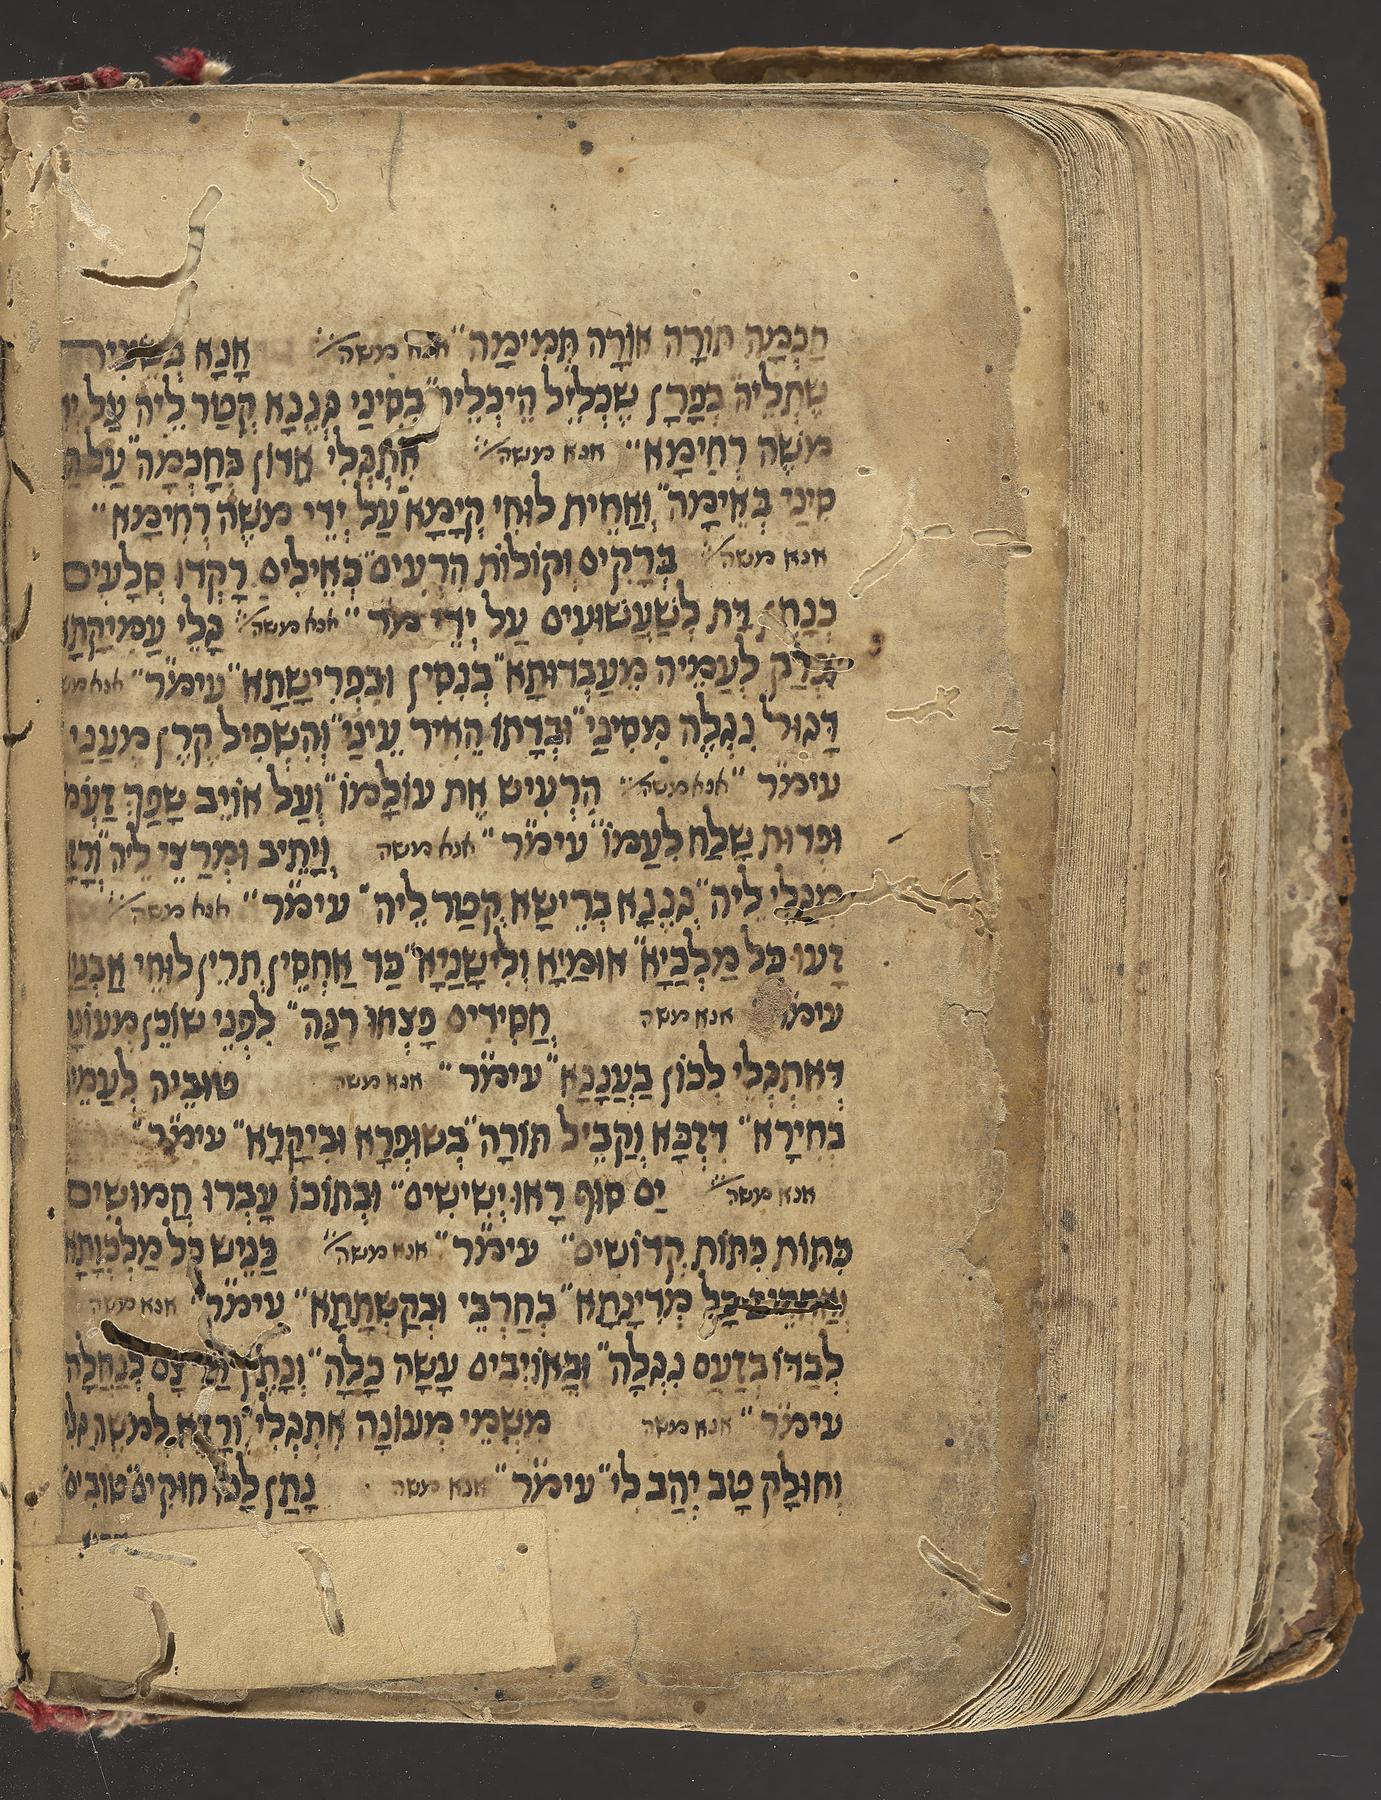 חָכְמָה תּוֹרָה אוֹרָה תְּמִימָה" אנא משה אֲנָא
שְׁתְלֵיהּ בְּפָרָן שַׁכְלֵיל הֵיכְלֵיהּ" בְּסִינַי עֲנָנָא קְטַר לֵיהּ עַל
משֶׁה רְחִימָא" אנא משה אִתְגְּלֵי אָדוֹן בְּחָכְמָה"
סִינַי בְּאֵימָה" וְאַחֵית לוּחֵי קְיָמָא עַל יְדֵי משֶׁה רְחִימָא"
אנא משה בְּרָקִים וְקוֹלוֹת הִרְעִים" כְּאֵילִים רָקְדוּ סְלָעִים
בְּנָתְנָךְ דַּת לְשַׁעֲשׁוּעִים עַל יְדֵי" אנא משה גָּלֵי
לְעַמֵּיהּ מֵעַבְדוּתָא" בְּנִסִין וּבִפְרִישָׁתָא" עימ̈ר" אנא
דָּגוּל נִגְלָה מִסִּינַי" וּבְדָתוֹ הֵאִיר עֵינַי" וְהִשְׁפִּיל קֶרֶן מְעַנַּי
עימ̈ר" אנא משה הִרְעִישׁ אֶת עוֹלָמוֹ" וְעַל אוֹיֵב שָׁפַךְ
וּפְדוּת שָׁלַח לְעַמּוֹ" עימ̈ר" אנא משה וְיָתֵיב וּמְרַצֵּי לֵיהּ
לֵיהּ" עֲנָנָא בְּרֵישָׁא קְטַר לֵיהּ" עימ̈ר" אנא משה
זָעוּ כָּל מַלְכַיָּא" אוּמַיָּא וְלִישָׁנַיָּא" כַּד אַחְסֵין תְּרֵין לוּחֵי
עימ̈ר אנא משה חֲסִידִים פָּצְחוּ רִנָּה" לִפְנֵי שׁוֹכֵן
דְּאִתְגְּלֵי לְכוֹן בַּעֲנָנָא" עימ̈ר" אנא משה טוּבֵיהּ
בְּחִירָא" דִּזְכָא וְקַבֵּיל תּוֹרָה" בְּשׁוּפְרָא וּבִיקָרָא" עימ̈ר"
אנא משה יַם סוּף רָאוּ יְשִׁישִׁים" וּבְתוֹכוֹ עָבְרוּ חֲמוּשִׁים
כִּתּוֹת כִּתּוֹת קְדוֹשִׁים" עימ̈ר" אנא משה כַּנֵּישׁ כָּל
כָּל מְדִינָתָא" בְּחַרְבֵי וּבְקַשְׁתָתָא" עימ̈ר" אנא משה
לְבַדּוֹ בְּזַעַם נִגְלָה" וּבְאוֹיְבִים עָשָׂה כָלָה"
עימ̈ר" אנא משה מִשְּׁמֵי מְעוֹנָה אִתְגְּלִי"
וְחוּלָק טָב יְהַב לִי" עימ̈ר" אנא משה נָתַן לָנוּ חוּקִים טוֹבִים